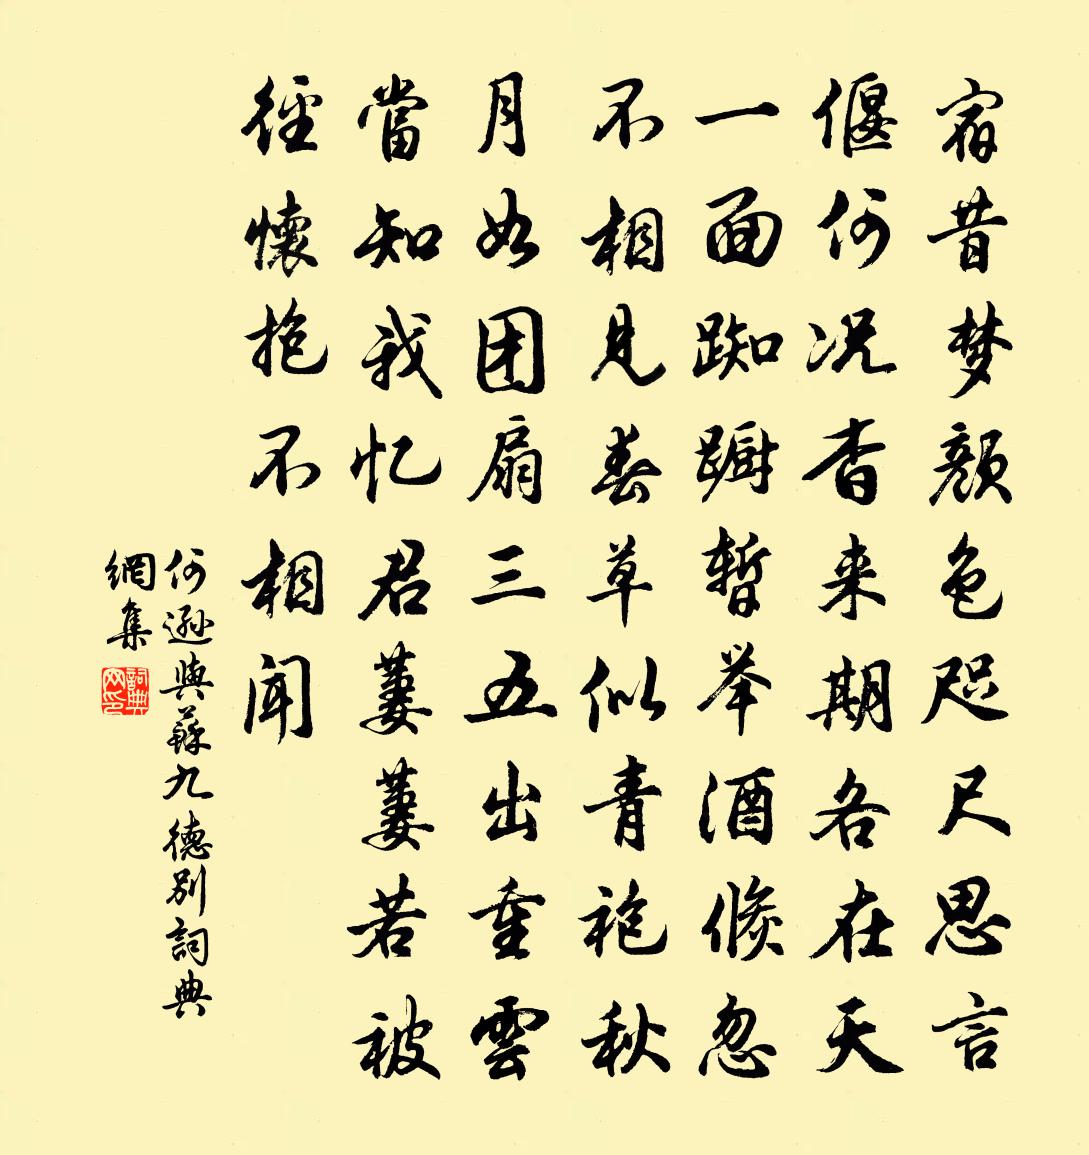 宿昔梦颜色咫尺思言
偃何况杳来期各在天
一面踟蹰暫举酒倏忽
不相见春草似青袍秋
月如团扇三五出重雲
當知我忆君萋萋若被
徑懷抱不相闻
何遜與蘇九德别詞典
網集
詞典
网印